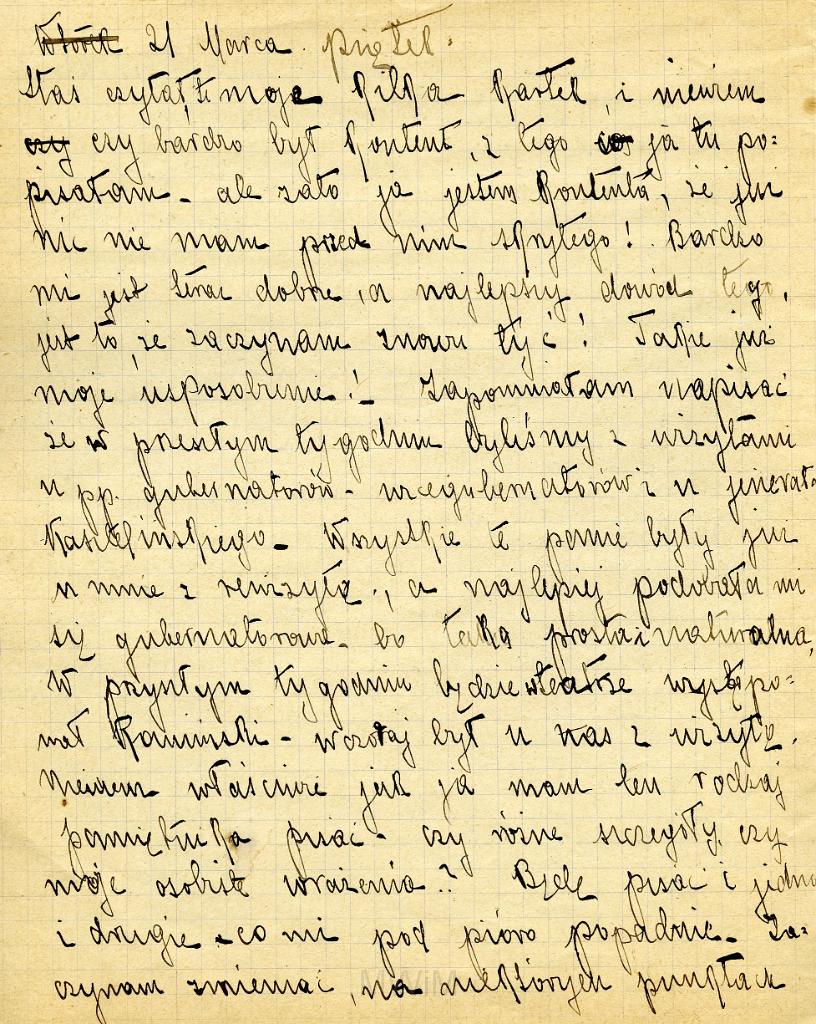 Wtorek 21 Marca. piątek.
Staś czytał, te moje kilka kartek, i niewiem
czy czy bardzo był kontent, z tego co ja tu po=
pisałam – ale zato ja jestem kontenta, że już
nic nie mam przed nim skrytego! Bardzo
mi jest teraz dobrze, a najlepszy dowód tego,
jest to, że zaczynam znowu tyć! Takie już
moje usposobienie! – Zapomniałam napisać
że w przeszłym tygodniu byliśmy z wizytami
u pp. gubernatorów – wicegubernatorów i u jenerała
Wszystkie te panie były już
u mnie z rewizytą, a najlepiej podobała mi
się gubernatorowa – bo taka prosta i naturalna,
W przyszłym tygodniu będzie w teatrze występo=
wał Kamiński – wczoraj był u nas z wizytą.
Niewiem właściwie jak ja mam ten rodzaj
pamiętnika pisać – czy różne szczegóły, czy
moje osobiste wrażenia? Będę pisać i jedno
i drugie – co mi pod pióro popadnie – Za=
czynam zmieniać, na niektórych punktach